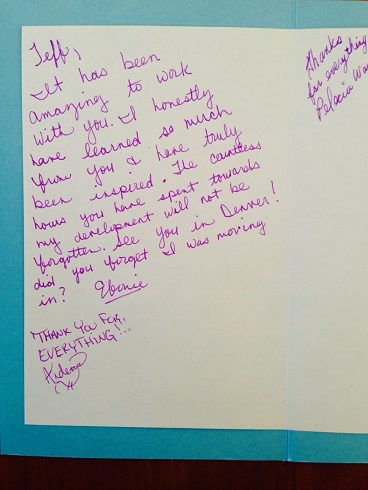 Jeff,
It has been
amazing to work
with you. I honestly
have learned so much
from you & have truly
been inspired. The countless
hours you have spent towards
my development will not be
forgotten. See you in Denver!
did you forget I was moving
in? Ebonie
"THANK YOU FOR,
EVERYTHING!...
Thanks
for everything